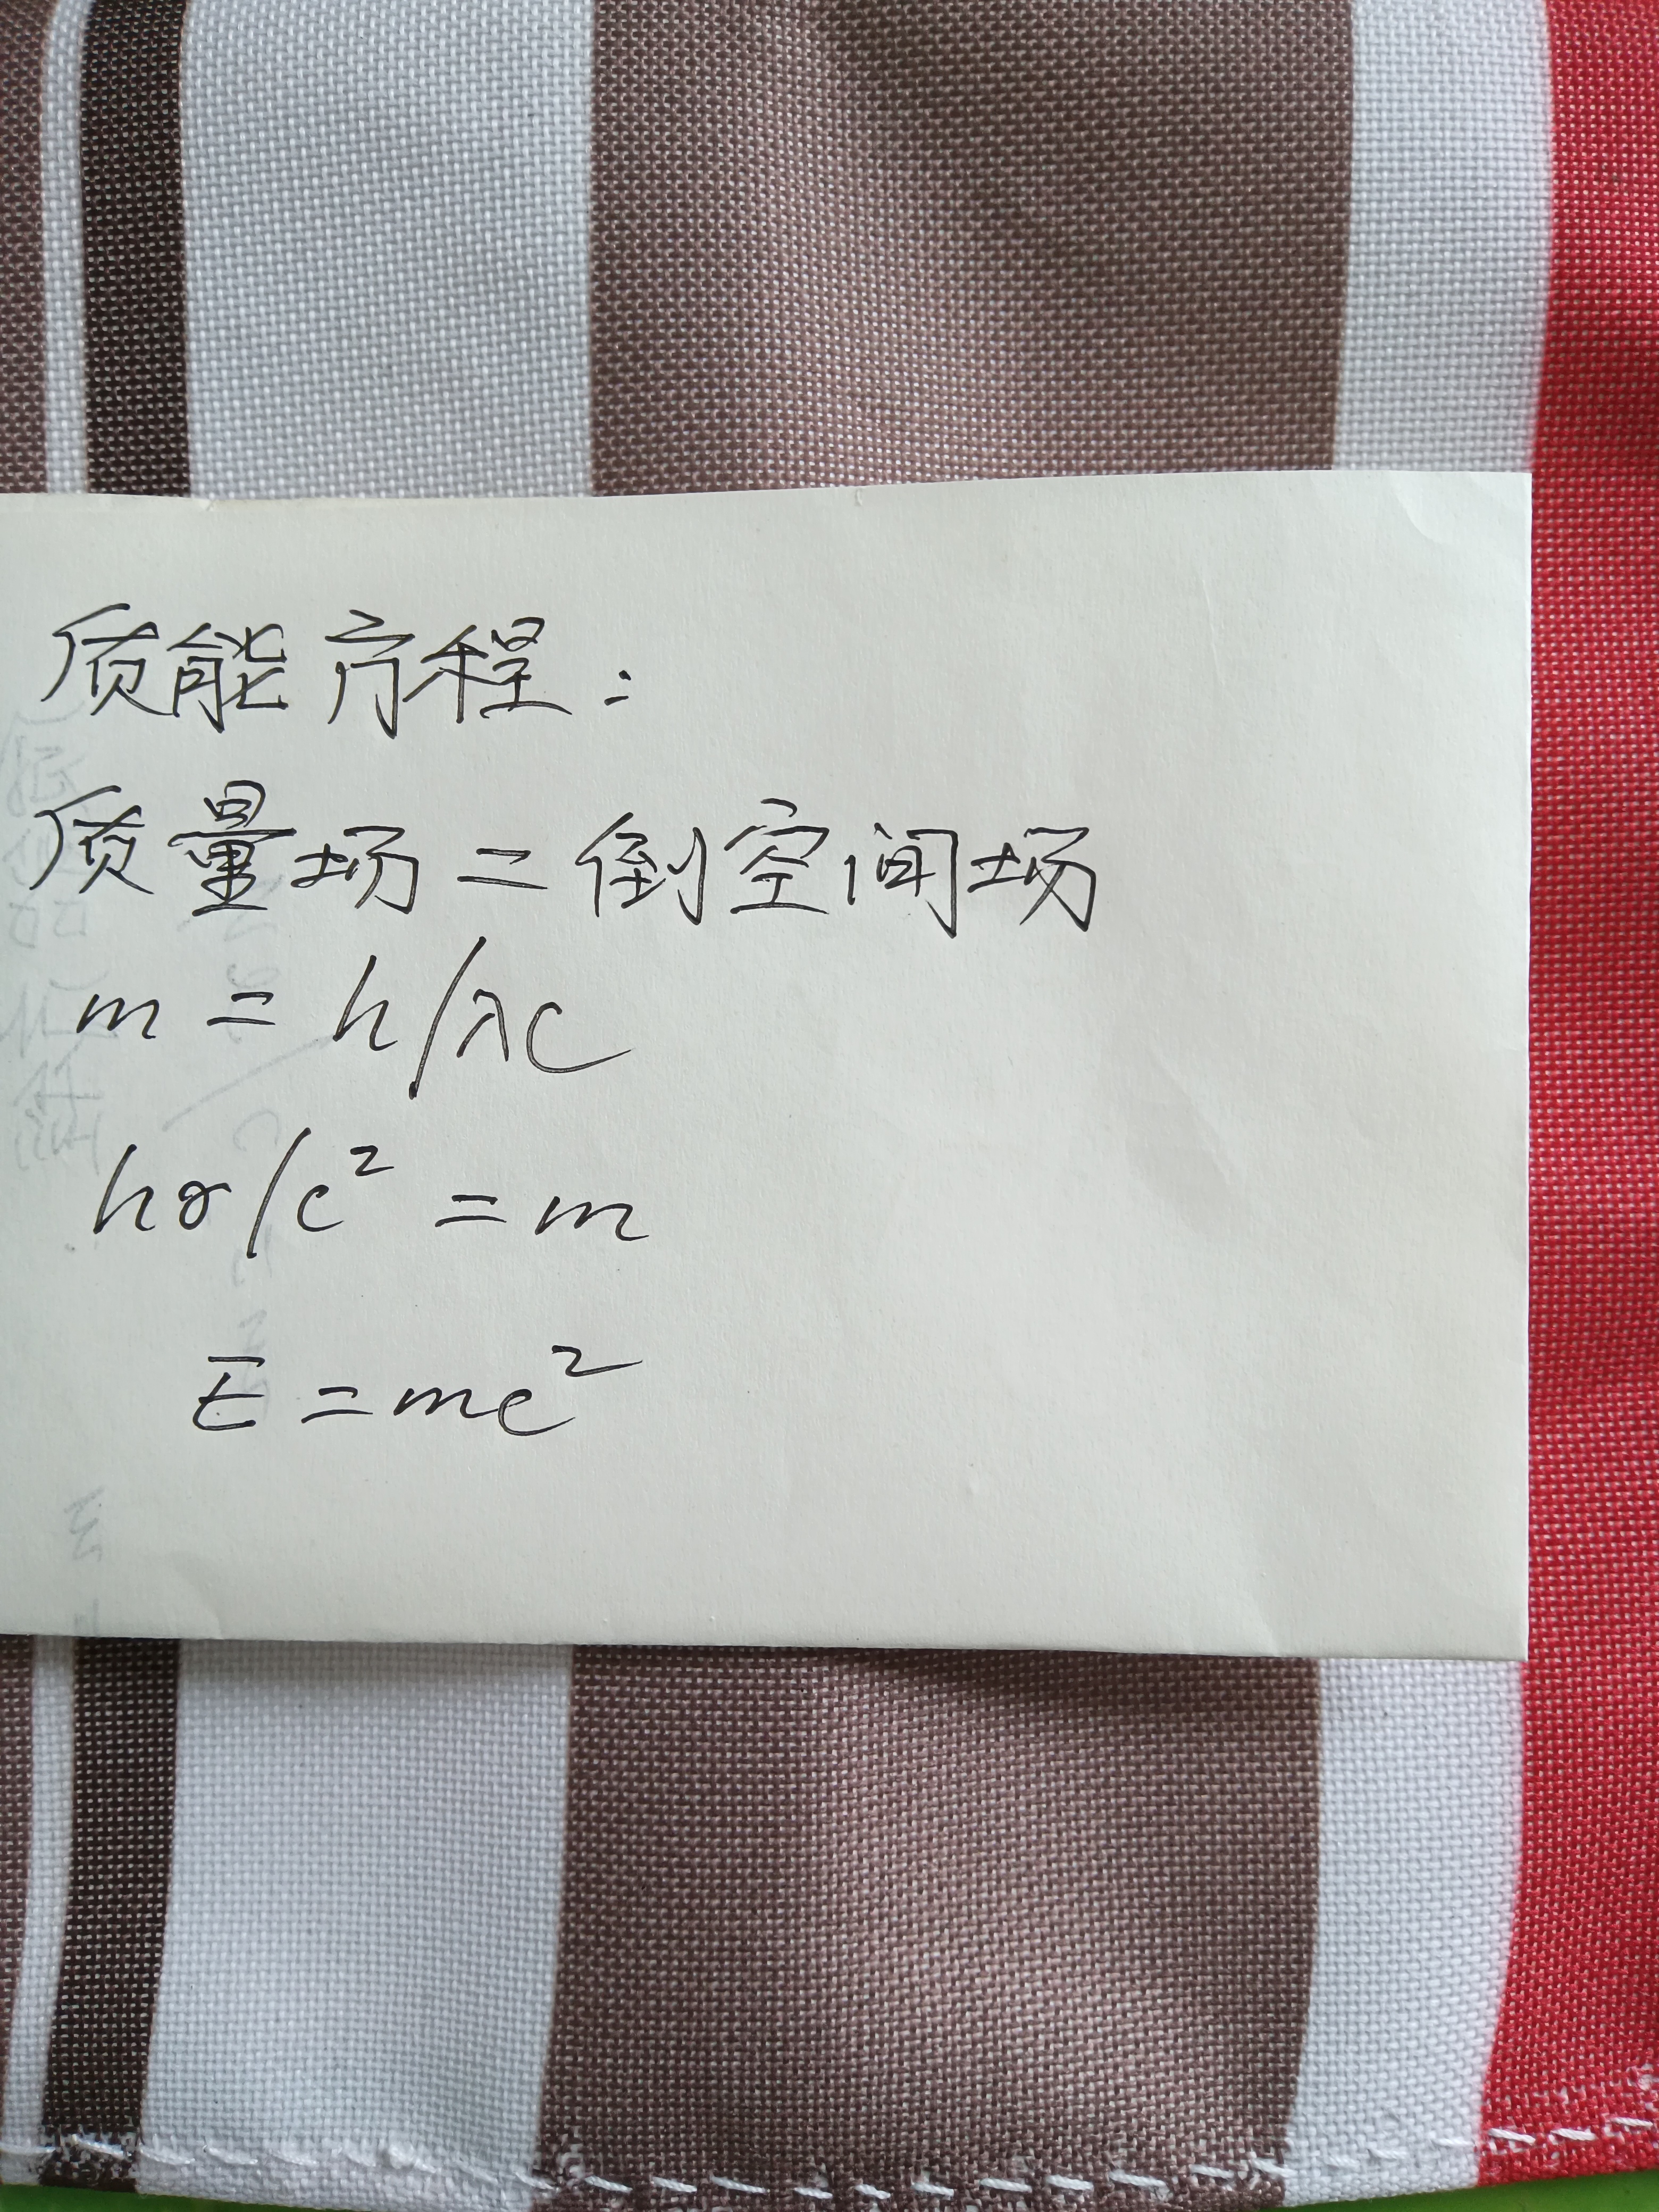 质能方程：
质量场=倒空间场
m=h/λc
hγ/c²=m
E=mc²